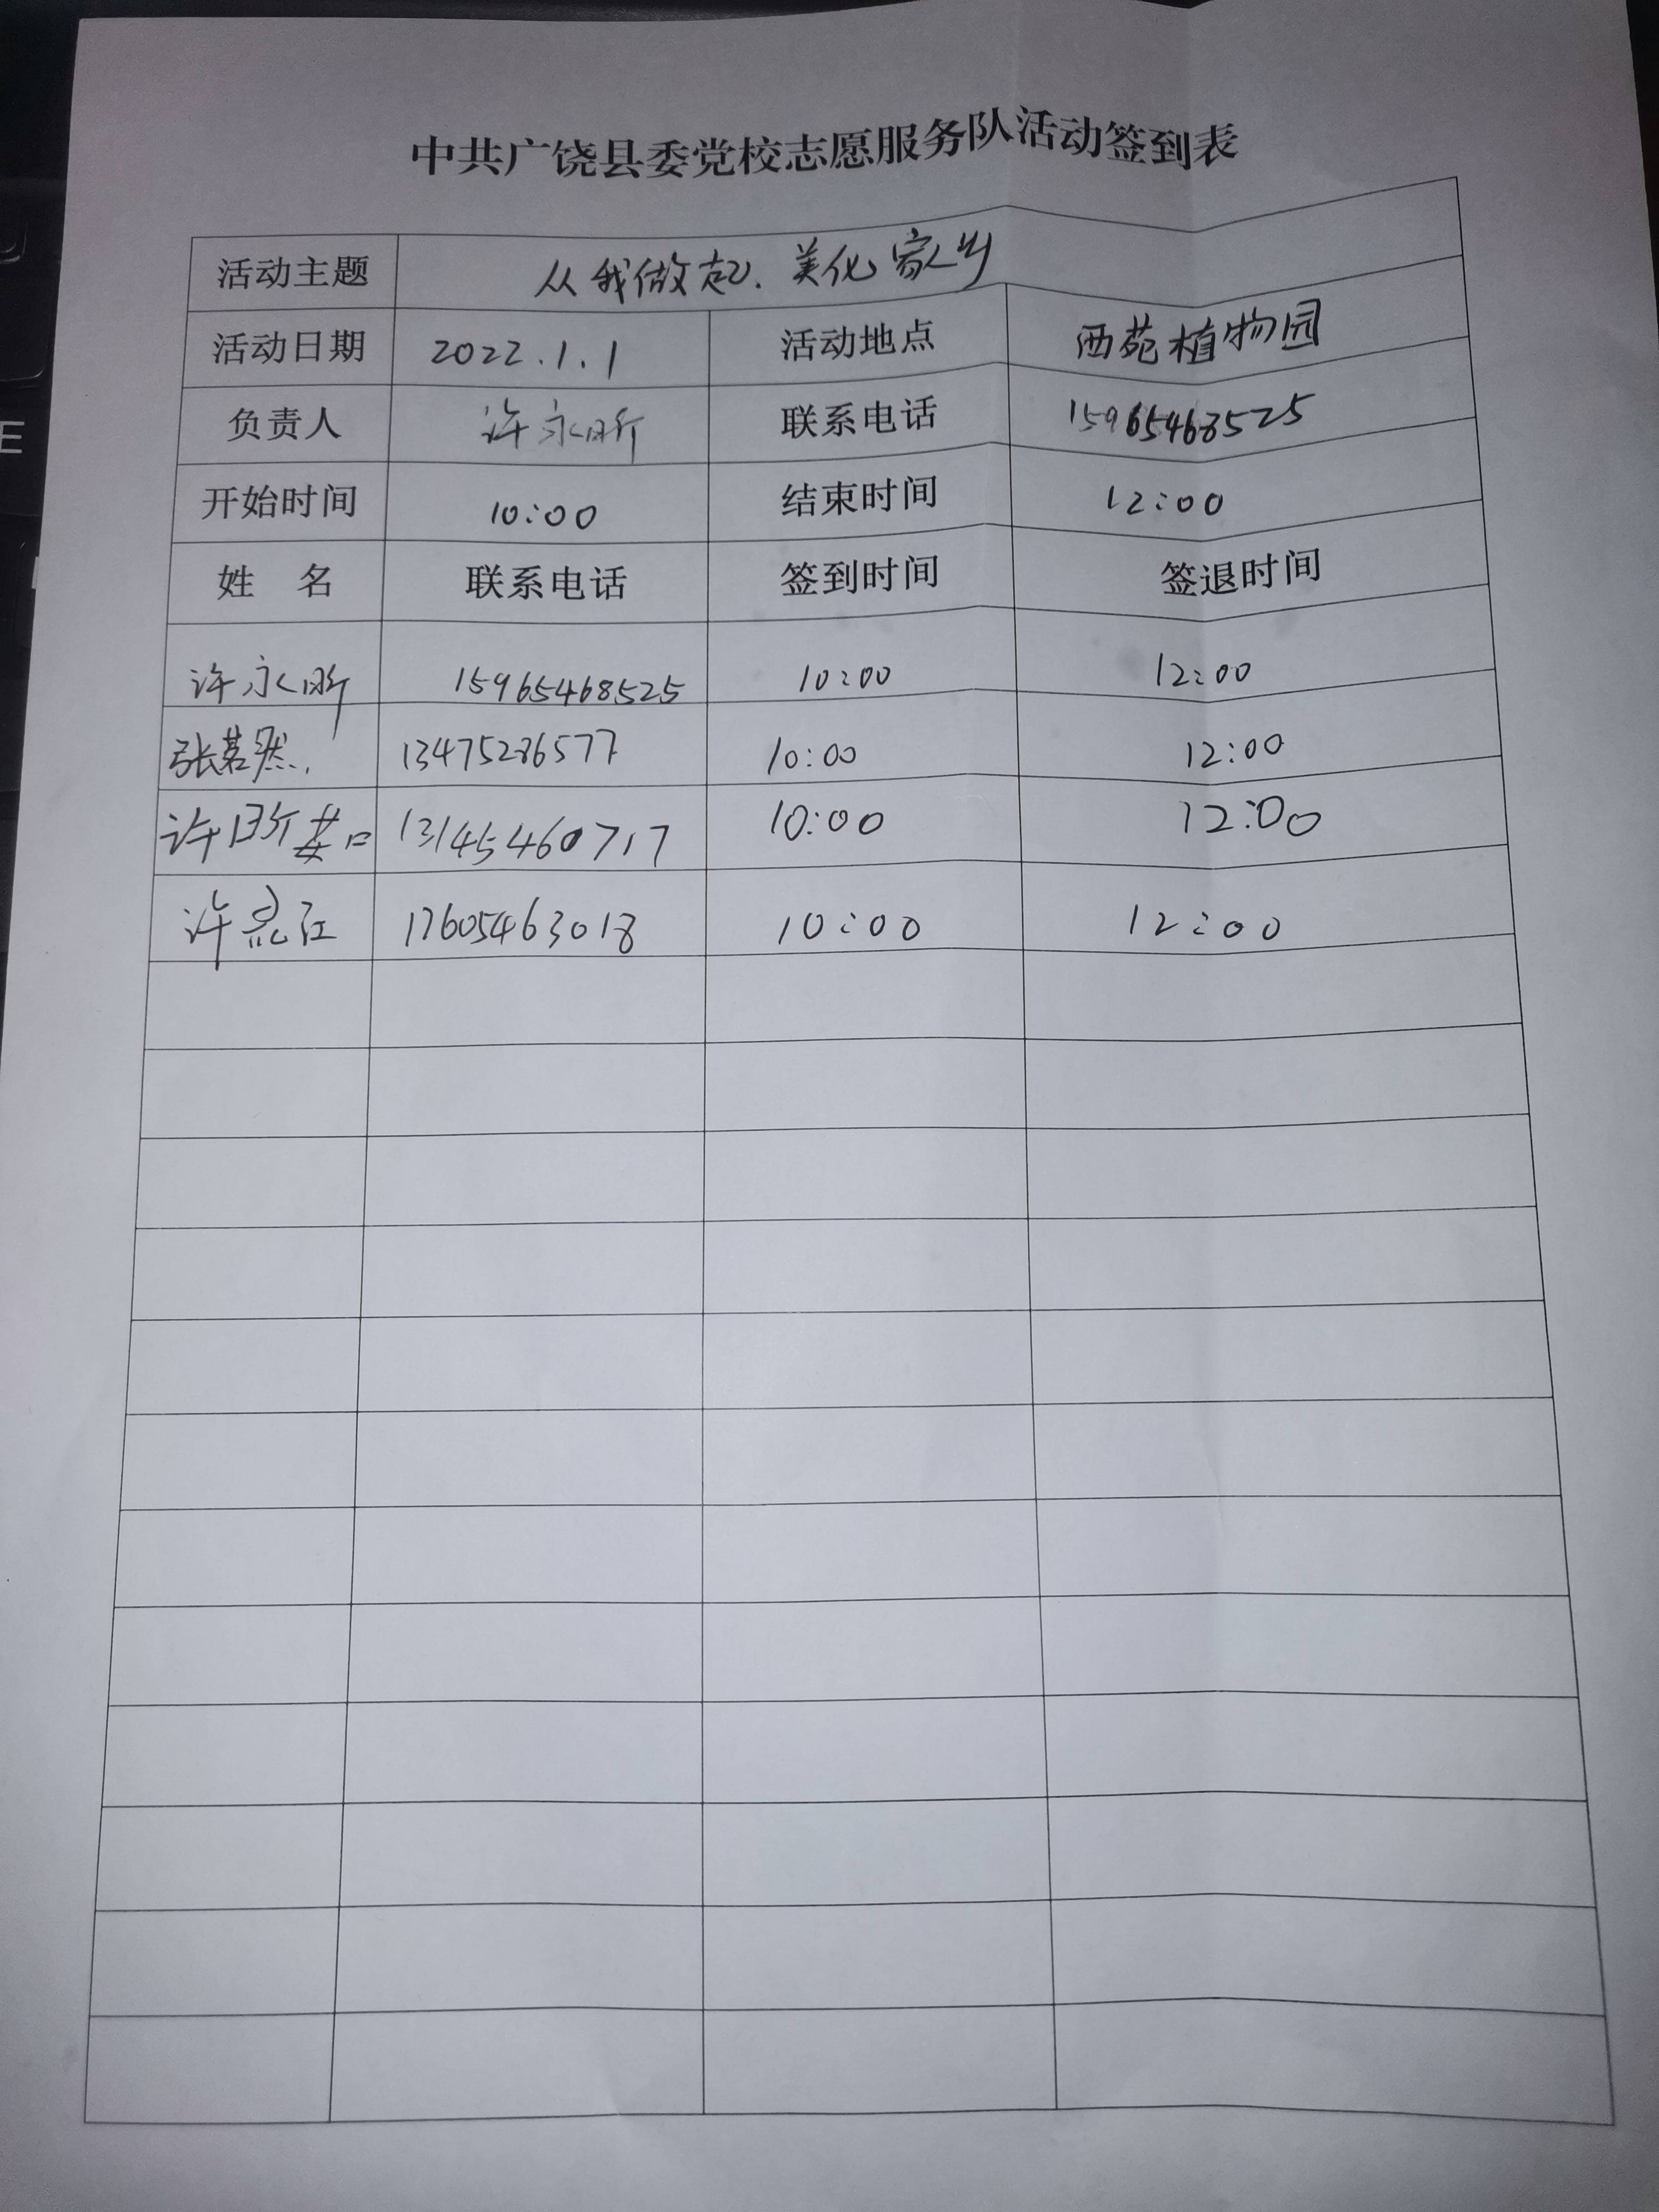 中共广饶县委党校志愿服务队活动签到表
活动主题 从我做起.美化家乡
活动日期 2022.1.1 活动地点 西苑植物园
负责人 许永昕 联系电话 15965468525
开始时间 10:00 结束时间 12:00
姓 名 联系电话 签到时间 签退时间
许永昕 15965468525 10:00 12:00
张茗然 13475286577 10:00 12:00
13145460717 10:00 12:00
许 江 17605463018 10:00 12:00
E